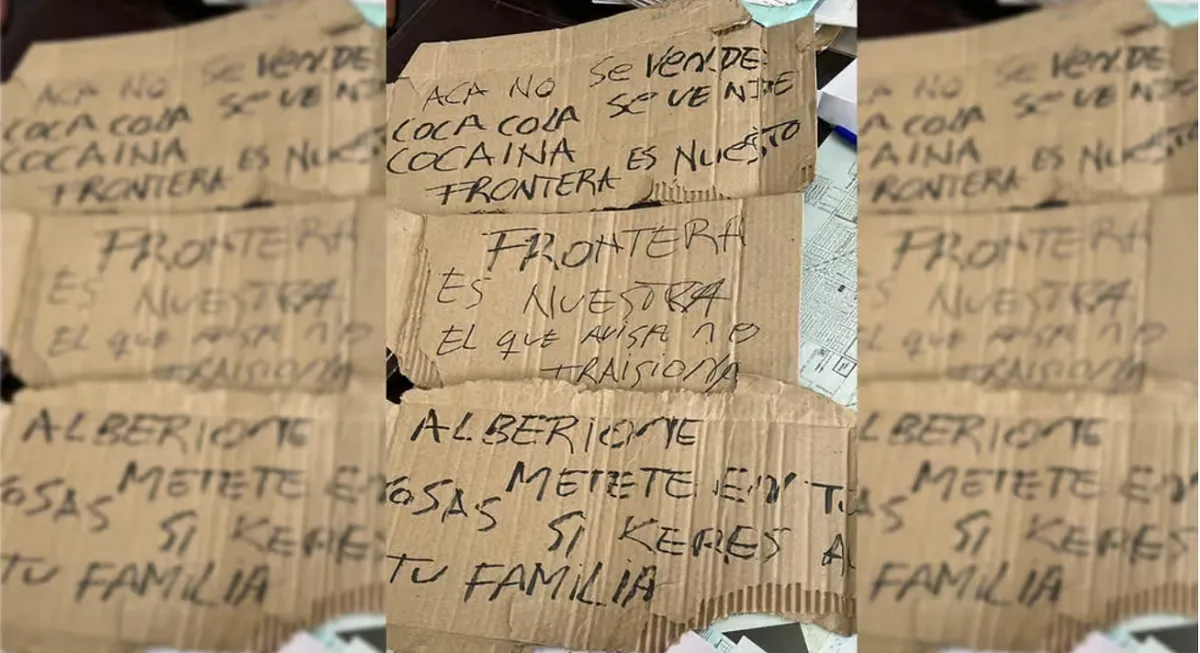 ACA NO Se VeNDE
COCA COLA Se VENDE
COCAINA
FRONTERA ES NUESTO
FRONTERA
ES NUESTRA
EL que AVISA NO
TRAISIONA
ALBERIONE
METETE EN TU
COSAS SI KERES A
TU FAMILIA